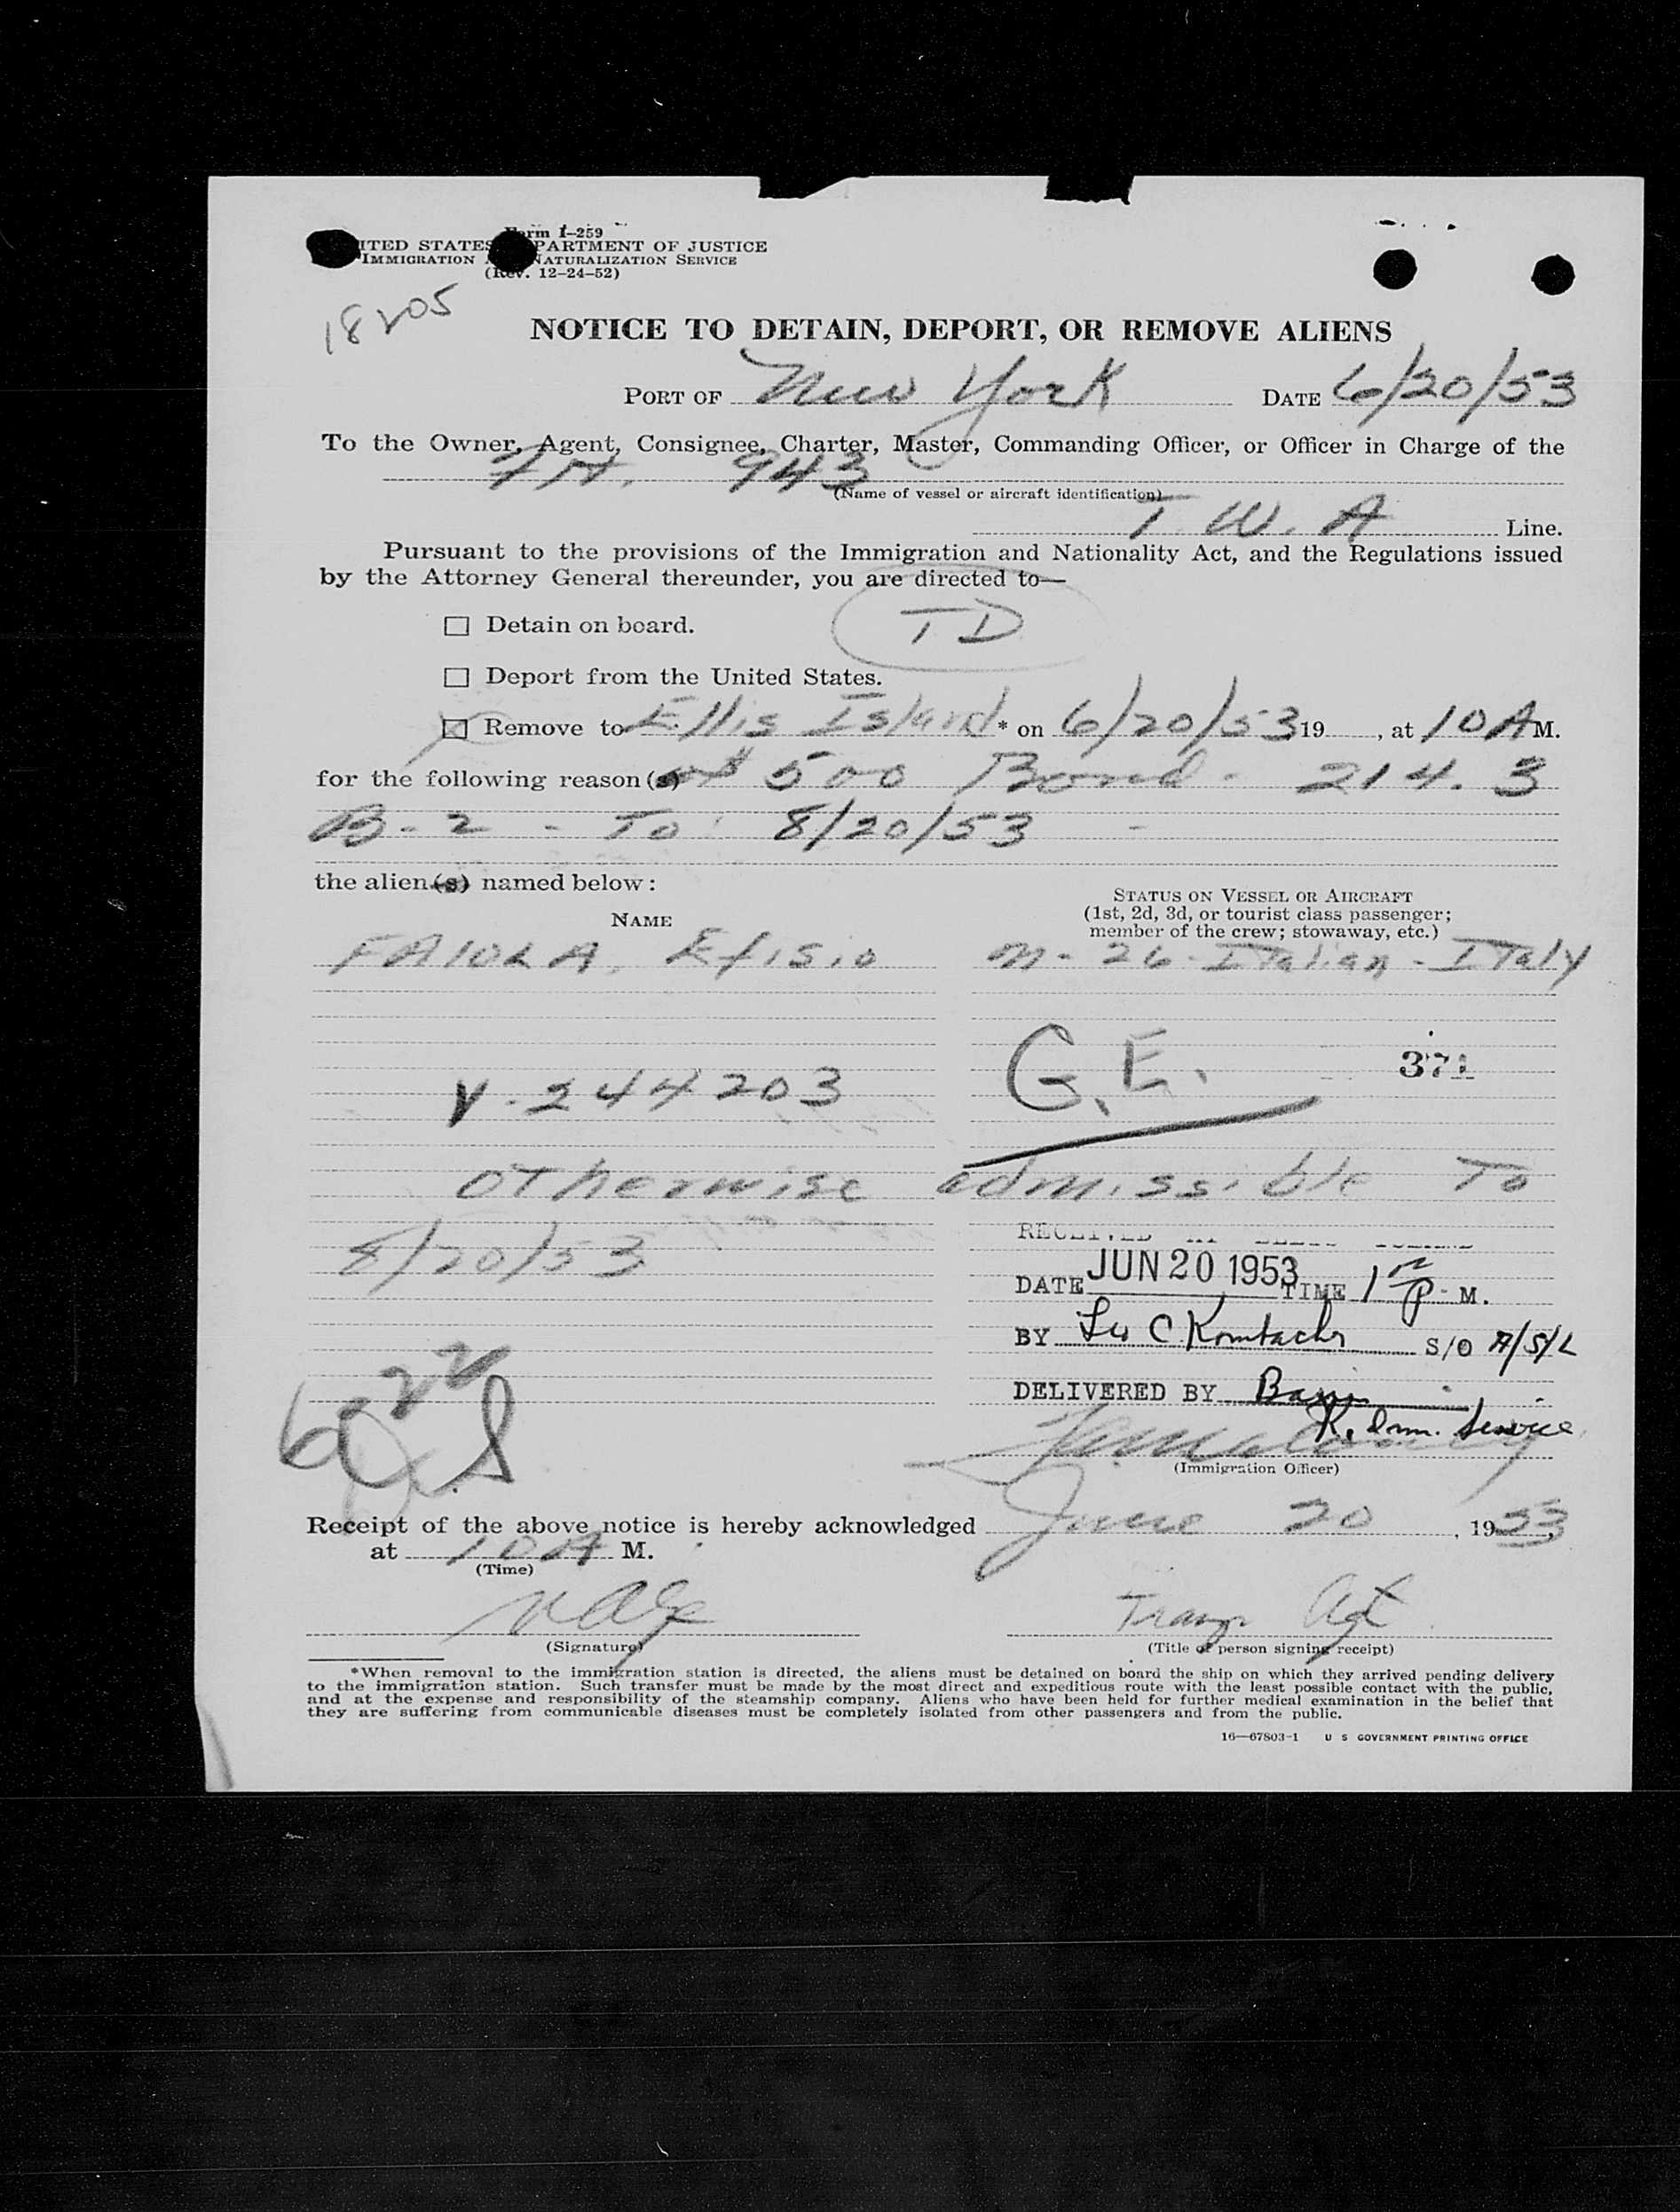 Form I-259
ITED STATES PARTMENT OF JUSTICE
IMMIGRATION NATURALIZATION SERVICE
(Rev. 12-24-52)
18205
NOTICE TO DETAIN, DEPORT, OR REMOVE ALIENS
PORT OF New York DATE 6/20/53
To the Owner, Agent, Consignee, Charter, Master, Commanding Officer, or Officer in Charge of the
943
(Name of vessel or aircraft identification)
T. W. A Line.
Pursuant to the provisions of the Immigration and Nationality Act, and the Regulations issued
by the Attorney General thereunder, you are directed to—
TD
☐ Detain on board.
☐ Deport from the United States.
☒ Remove to Ellis Island * on 6/20/53 19 , at 10 A M.
for the following reason(s) $ 500 Bond - 214. 3
B-2 - To: 8/20/53 -
the alien(s) named below:
NAME
STATUS ON VESSEL OR AIRCRAFT
(1st, 2d, 3d, or tourist class passenger;
member of the crew; stowaway, etc.)
Efisio M - 26 - Italian - Italy
G.E. 371
V. 244203
otherwise admissible To
8/20/53
RECEIVED AT ELLIS ISLAND
DATE JUN 20 1953 TIME 1 P. M.
BY Leo C. S/O A/S/L
DELIVERED BY
Service
(Immigration Officer)
Receipt of the above notice is hereby acknowledged June 20 , 1953,
at 10 A M.
(Time)
Transp Agt
(Signature) (Title of person signing receipt)
*When removal to the immigration station is directed, the aliens must be detained on board the ship on which they arrived pending delivery
to the immigration station. Such transfer must be made by the most direct and expeditious route with the least possible contact with the public,
and at the expense and responsibility of the steamship company. Aliens who have been held for further medical examination in the belief that
they are suffering from communicable diseases must be completely isolated from other passengers and from the public.
16—67803-1 U S GOVERNMENT PRINTING OFFICE